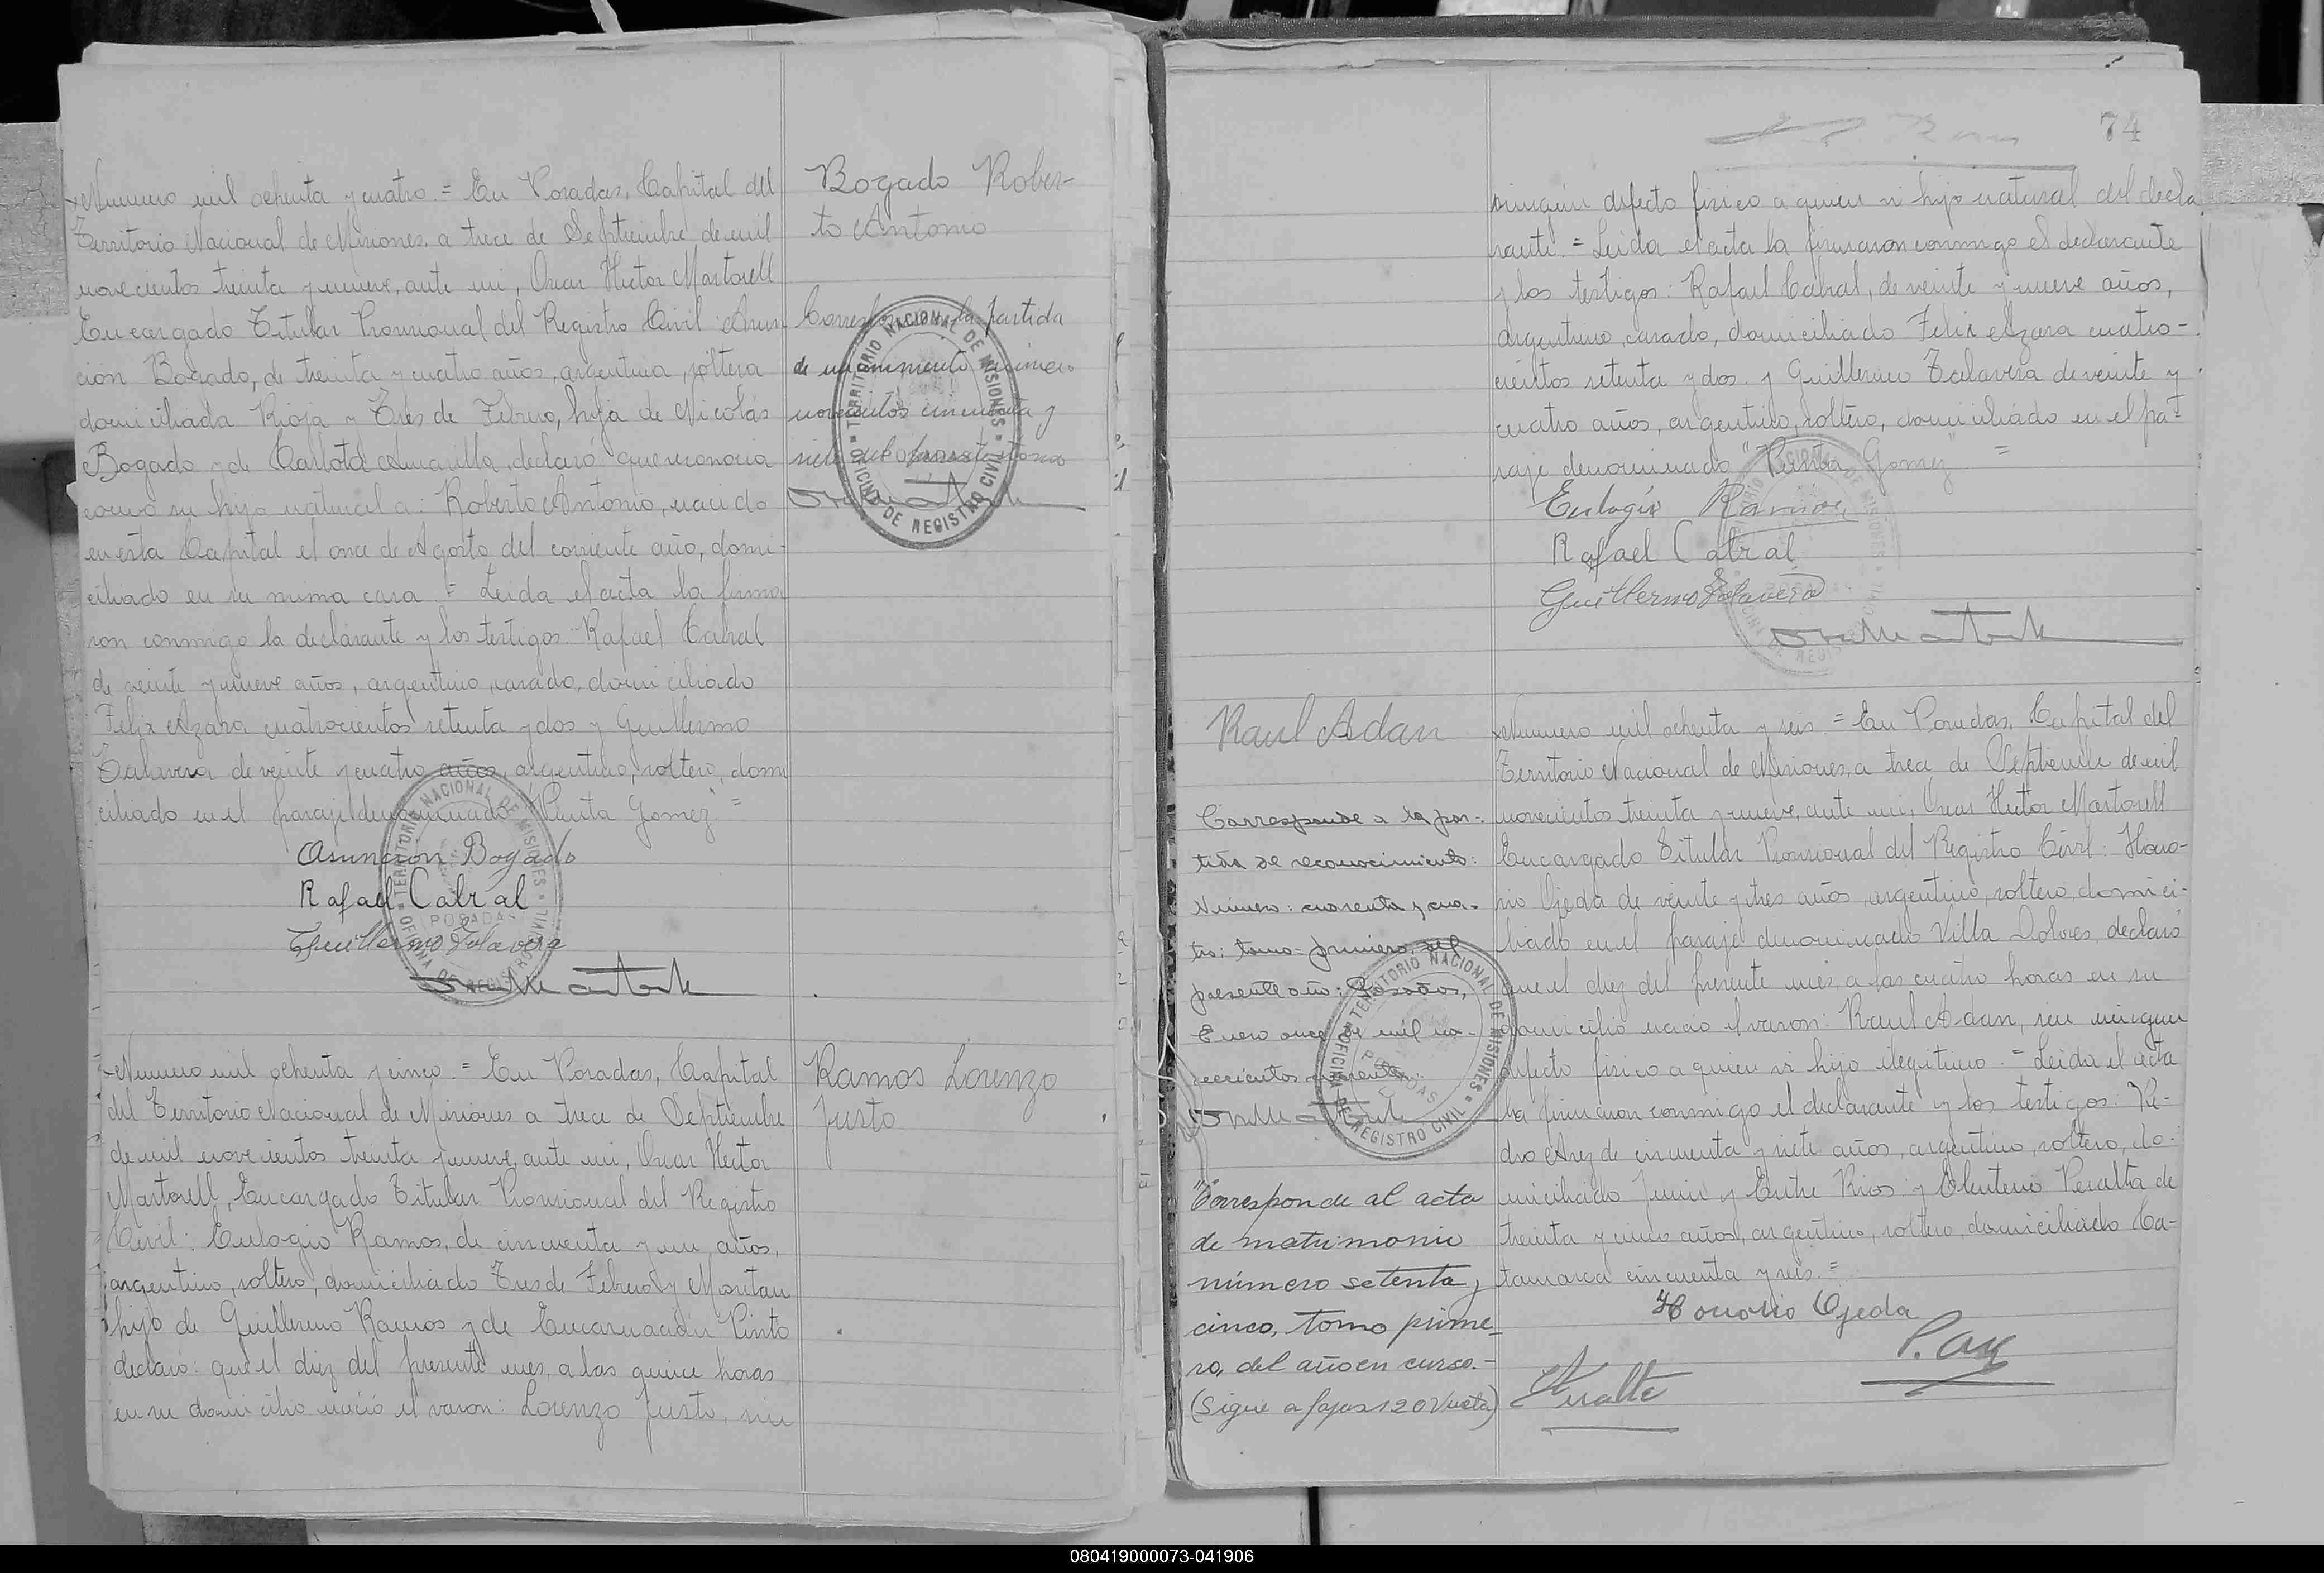 Numero mil ochenta y cuatro.= En Posadas, Capital del
Territorio Nacional de Misiones, a trece de Septiembre de mil
novecientos treinta y nueve, ante mi, Oscar Hector Martorell
Encargado Titular Provisional del Registro Civil: Asun
cion Bogado, de treinta y cuatro años, argentina, soltera
domiciliada Rioja y Tres de Febrero, hija de Nicolás
Bogado y de Carlota Amarilla, declaró que reconocia
como su hijo natural a: Roberto Antonio, nacido
en esta Capital el once de Agosto del corriente año, domi-
ciliado en su misma casa = Leida el acta la firma
ron conmigo la declarante y los testigos: Rafael Cabral
de veinte y nueve años, argentino, casado, domiciliado
Felix Azara cuatrocientos setenta y dos y Guillermo
Talavera de veinte y cuatro años, argentino, soltero, domi
ciliado en el paraje denominado "Punta Gomez" =
Asunción Bogado
Rafael Cabral
Guillermo Talavera
Bogado Rober-
to Antonio
Corresponde a la partida
de nacimiento número
novecientos cincuenta y
siete del presente tomo
TERRITORIO NACIONAL DE MISIONES
OFICINA DE REGISTRO CIVIL
POSADAS
Numero mil ochenta y cinco.= En Posadas, Capital
del Territorio Nacional de Misiones a trece de Septiembre
de mil novecientos treinta y nueve, ante mi, Oscar Hector
Martorell, Encargado Titular Provisional del Registro
Civil: Eulogio Ramos, de cincuenta y un años,
argentino, soltero, domiciliado Tres de Febrero y
hijo de Guillermo Ramos y de Encarnación Pinto
declaró: que el diez del presente mes, a las quince horas
en su domicilio nació el varon: Lorenzo Justo, sin
Ramos Lorenzo
Justo
74
ningún defecto fisico a quien vi hijo natural del decla
rante.= Leida el acta la firmaron conmigo el declarante
y los testigos: Rafael Cabral, de veinte y nueve años,
argentino, casado, domiciliado Felix Azara cuatro-
cientos setenta y dos y Guillermo Talavera de veinte y
cuatro años, argentino, soltero, domiciliado en el pa-
raje denominado "Punta Gomez" =
Eulogio Ramos
Rafael Cabral
Guillermo Talavera
Raul Adan
Corresponde a la par-
tida de reconocimiento:
Número: cuarenta y cua-
tro: tomo: primero, del
presente año: Posadas,
Enero once de mil no-
vecientos cuarenta:
"Corresponde al acta
de matrimonio
número setenta y
cinco, tomo prime-
ro, del año en curso.-
(Sigue a fojas 120 Vuelta)
Numero mil ochenta y seis.= En Posadas, Capital del
Territorio Nacional de Misiones, a trece de Septiembre de mil
novecientos treinta y nueve, ante mi, Oscar Hector Martorell
Encargado Titular Provisional del Registro Civil: Hono-
rio Ojeda de veinte y tres años, argentino, soltero, domici-
liado en el paraje denominado Villa Dolores, declaró
que el diez del presente mes, a las cuatro horas en su
domicilio nació el varon: Raul Adan, sin ningun
defecto fisico a quien vi hijo ilegitimo.= Leida el acta
la firmaron conmigo el declarante y los testigos: Pe-
dro Arez de cincuenta y siete años, argentino, soltero, do-
miciliado Junin y Entre Rios y Eleuterio Peralta de
treinta y cinco años, argentino, soltero, domiciliado Ca-
tamarca cincuenta y seis.=
Honorio Ojeda
080419000073-041906